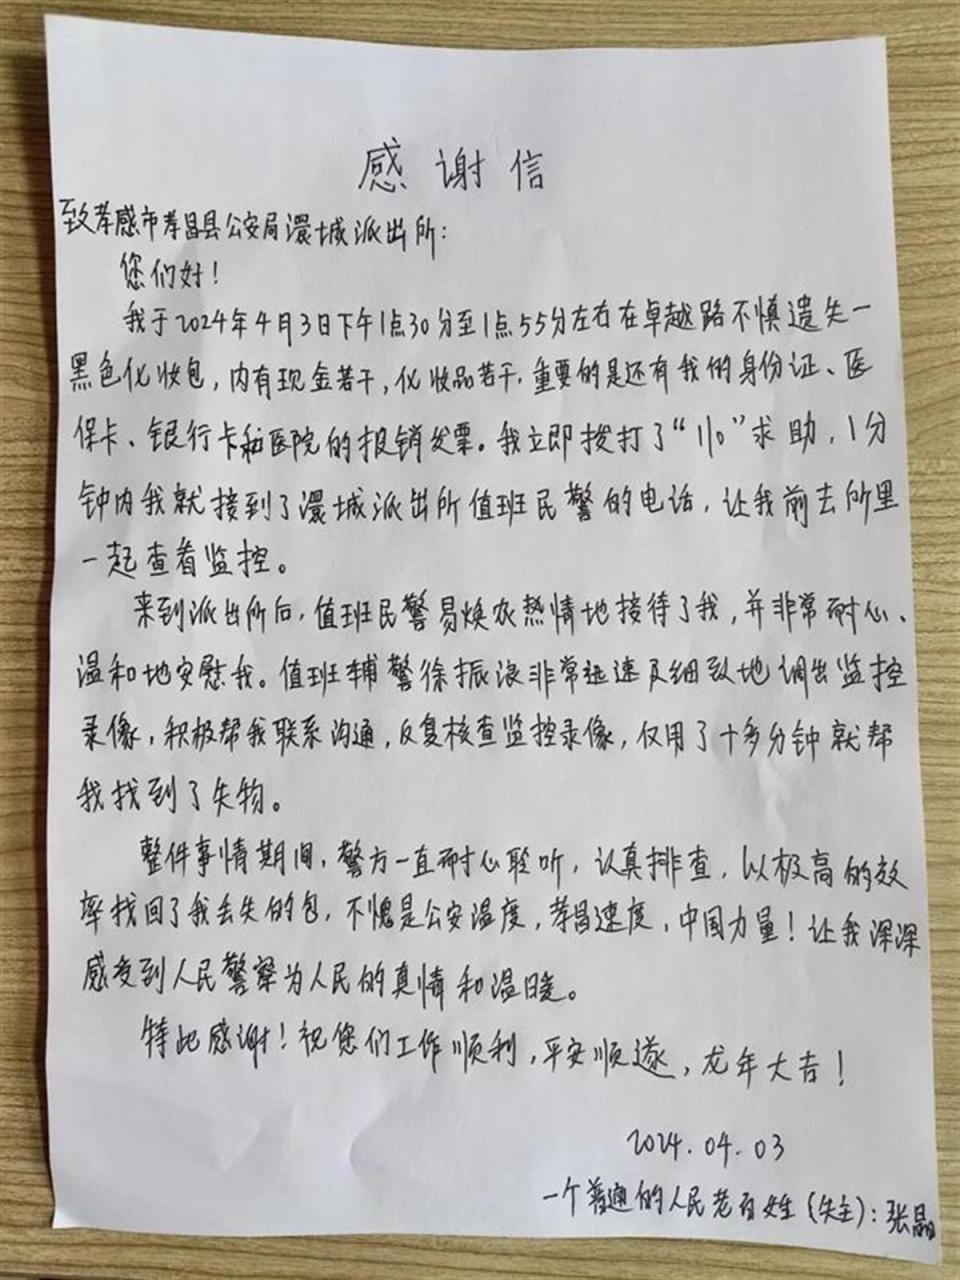 感谢信
致孝感市孝昌县公安局澴城派出所:
您们好!
我于2024年4月3日下午1点30分至1点55分左右在卓越路不慎遗失一
黑色化妆包,内有现金若干,化妆品若干,重要的是还有我的身份证、医
保卡、银行卡和医院的报销发票。我立即拨打了“110”求助,1分
钟内我就接到了澴城派出所值班民警的电话,让我前去所里
一起查看监控。
来到派出所后,值班民警易焕农热情地接待了我,并非常耐心、
温和地安慰我。值班辅警徐振浪非常迅速及细致地调出监控
录像,积极帮我联系沟通,反复核查监控录像,仅用了十多分钟就帮
我找到了失物。
整件事情期间,警方一直耐心聆听,认真排查,以极高的效
率找回了我丢失的包,不愧是公安温度,孝昌速度,中国力量!让我深深
感受到人民警察为人民的真情和温暖。
特此感谢!祝您们工作顺利,平安顺遂,龙年大吉!
2024.04.03
一个普通的人民老百姓(失主):张晶